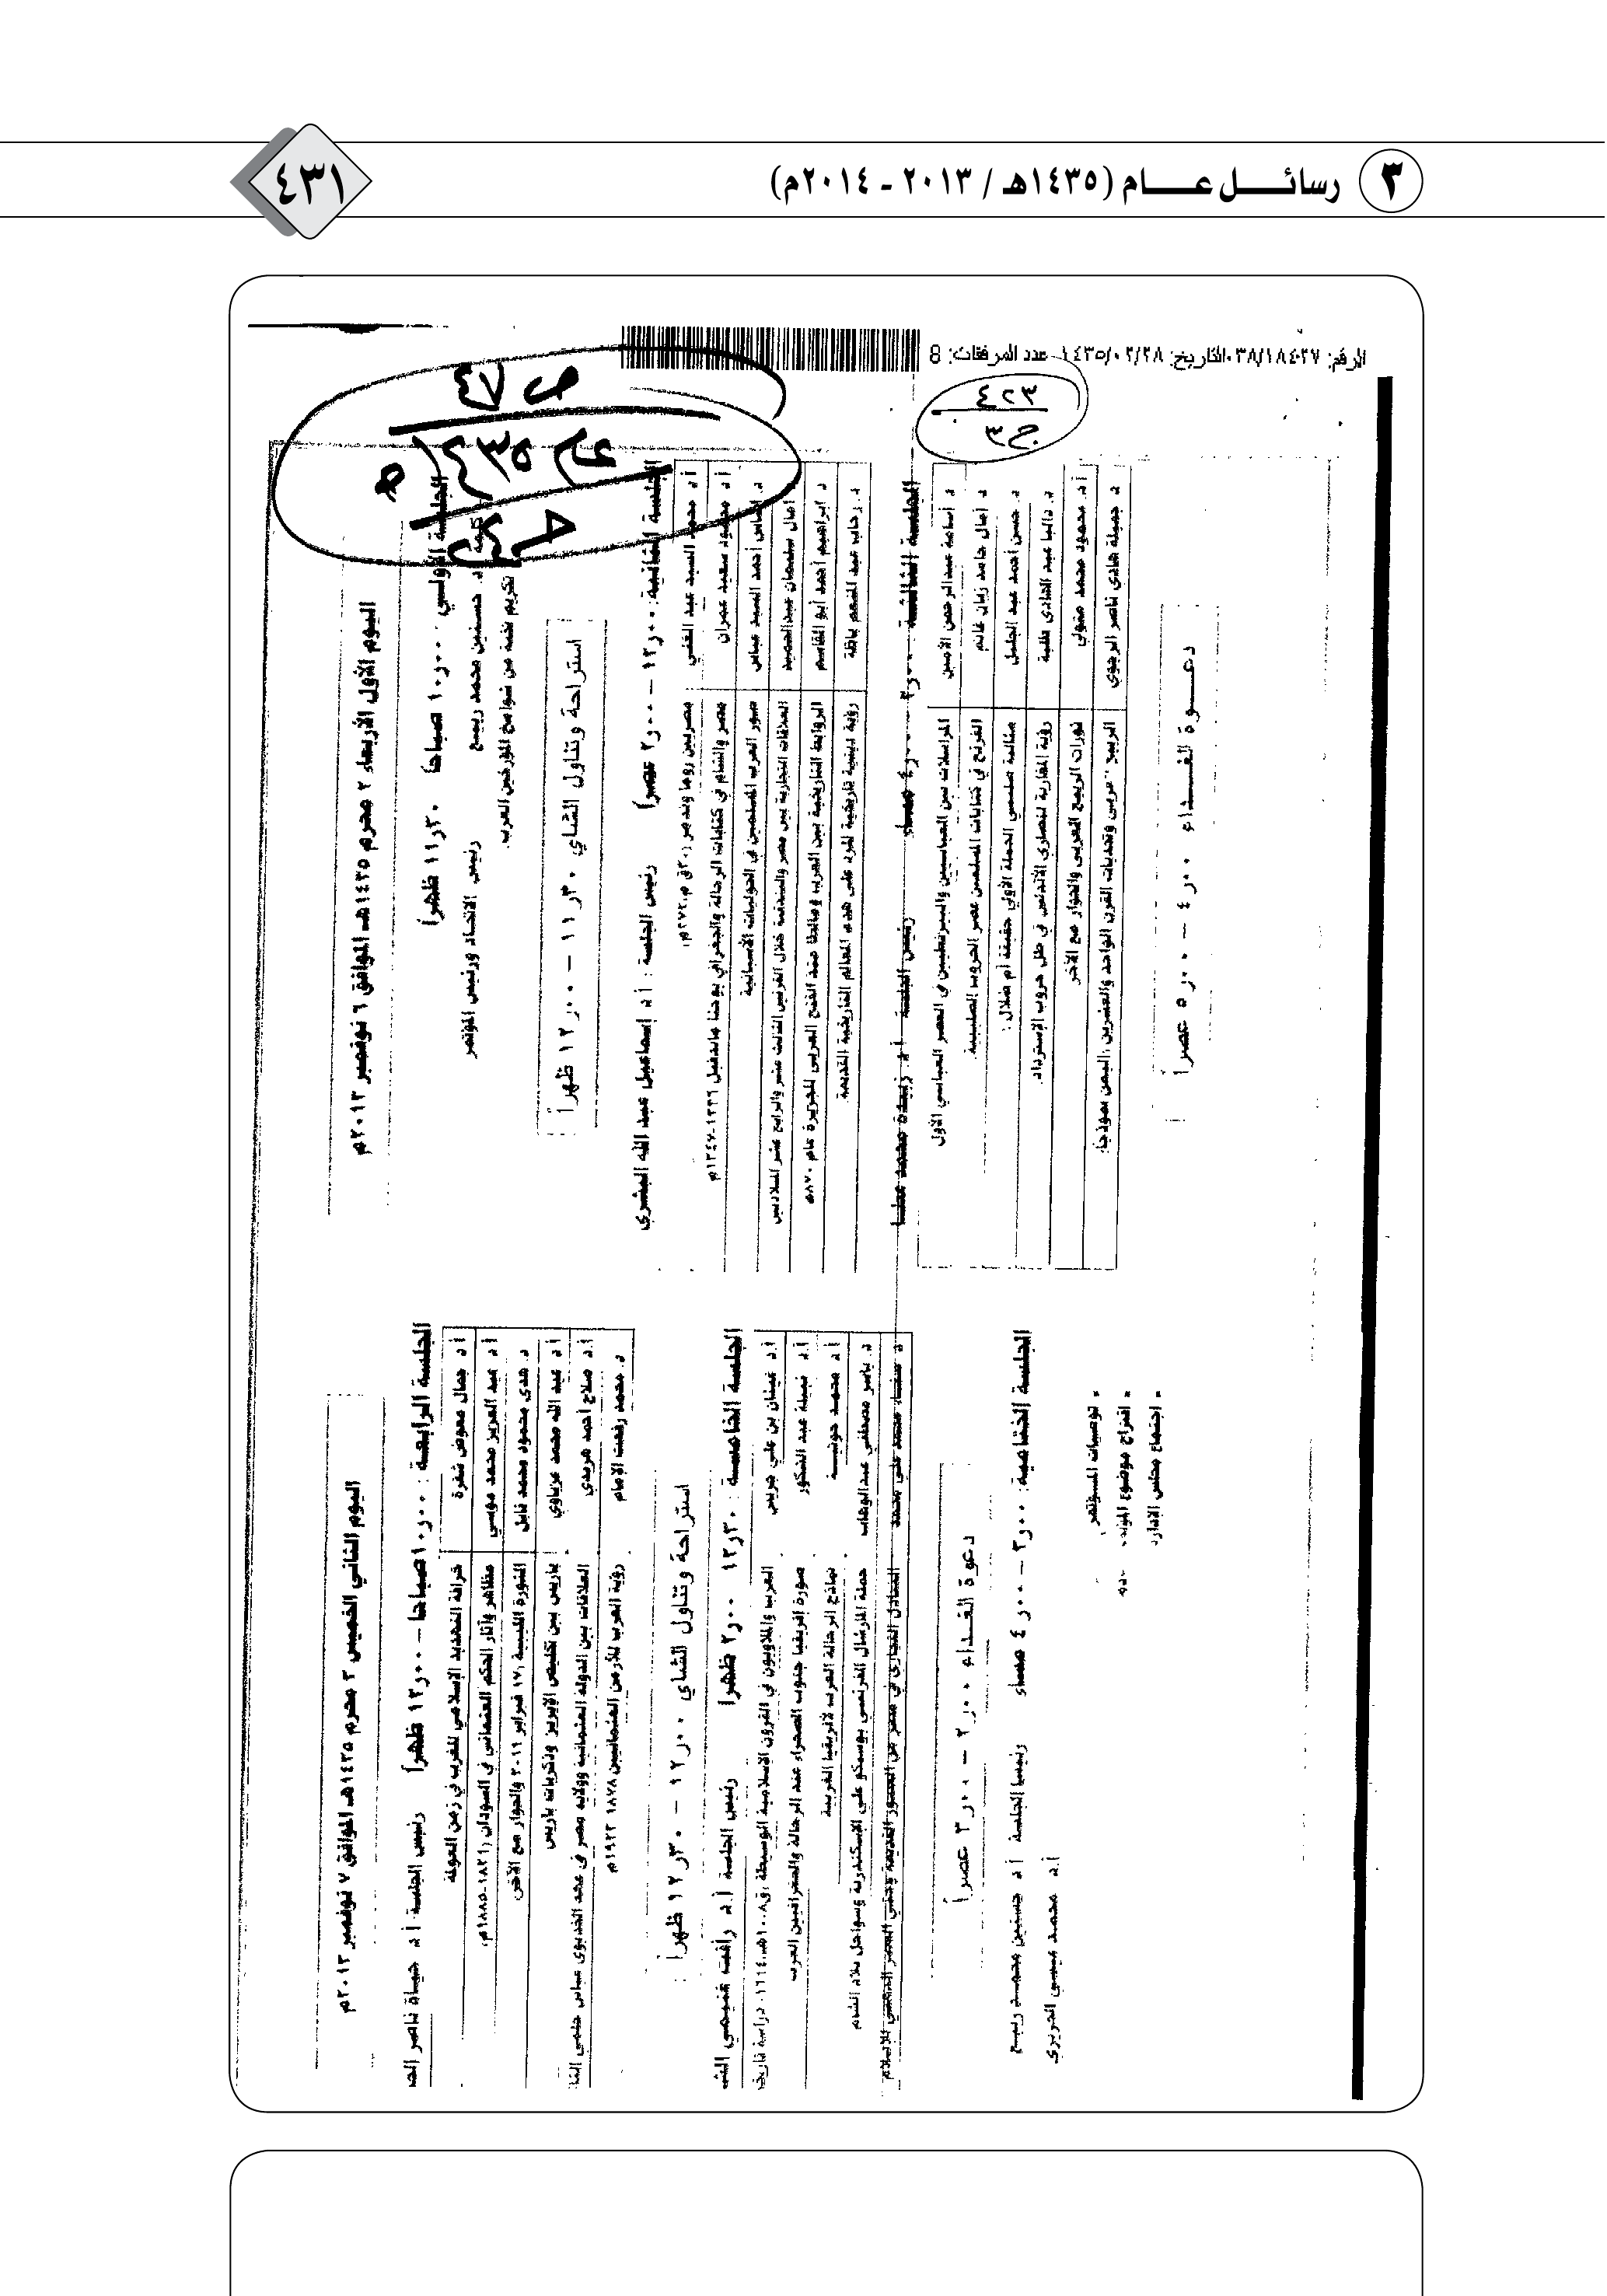 ٣ رسائل عام (١٤٣٥هـ / ٢٠١٣ - ٢٠١٤م)
٤٣١
الرقم: ٠٣٨/١٨٤٢٧ التاريخ: ١٤٣٥/٠٢/٢٨ عدد المرفقات: 8
٤٢٣
ج ٣
ص ٤٧
عام ١٤٣٥ هـ
اليوم الأول الأربعاء ٢ محرم ١٤٣٥هـ الموافق ٦ نوفمبر ٢٠١٣م
الجلسة الأولى ١٠,٠٠ صباحاً ١١,٣٠ ظهراً
كلمة أ.د. حسنين محمد ربيع رئيس الاتحاد ورئيس المؤتمر
تكريم نخبة من شوامخ المؤرخين العرب
استراحة وتناول الشاي ١١,٣٠ – ١٢,٠٠ ظهراً
الجلسة الثانية: ١٢,٠٠ – ٢,٠٠ عصراً رئيس الجلسة : أ.د إسماعيل عبد الله البشري
أ.د محمد السيد عبد الغني
أ.د محمود سعيد عمران مصر والشام في كتابات الرحالة والجغرافي يوحنا ماندفيل ١٣٣٦-١٣٤٧م
د. إلياس أحمد السيد عباس صور العرب المسلمين في الحوليات الأسبانية
د. آمال سليمان عبدالحميد العلاقات التجارية بين مصر والبندقية خلال القرنين الثالث عشر والرابع عشر الميلاديين
د ابراهيم أحمد أبو القاسم الروابط التاريخية بين العرب ومالطا منذ الفتح العربي للجزيرة عام ٨٧٠م
د. رحاب عبد المنعم باظة رؤية دينية تاريخية للرد على هدم المعالم التاريخية القديمة
الجلسة الثالثة ٣,٠٠ – ٤,٠٠ مساء رئيس الجلسة أ.د. زبيدة محمد عطا
د أسامة عبدالرحمن الأمين المراسلات بين العباسيين والبيزنطيين في العصر العباسي الأول
د آمال حامد زيان غانم الفرنج في كتابات المسلمين عصر الحروب الصليبية
د. حسن أحمد عبد الجليل مثالية صليبيي الحملة الأولى حقيقة أم ضلال
د. داليا عبد الهادي طلبة رؤية المغاربة لنصارى الأندلس في ظل حروب الاسترداد
أ.د. محمود محمد متولي ثورات الربيع العربي والحوار مع الآخر
د جميلة هادي ناصر الرجوي الربيع العربي وتحديات القرن الواحد والعشرين (اليمن نموذجا)
دعوة الغداء ٤,٠٠ – ٥,٠٠ عصراً
اليوم الثاني الخميس ٣ محرم ١٤٣٥هـ الموافق ٧ نوفمبر ٢٠١٣م
الجلسة الرابعة : ١٠,٠٠ صباحا – ١٢,٠٠ ظهراً رئيس الجلسة أ.د حياة ناصر
أ.د جمال معوض شقرة خرافة التهديد الإسلامي للغرب في زمن العولمة
أ.د عبد العزيز محمد موسى مظاهر وآثار الحكم العثماني في السودان (١٨٢١-١٨٨٥م)
د. هدى محمود محمد نايل الثورة الليبية ١٧ فبراير ٢٠١١ والحوار مع الآخر
أ.د عبد الله محمد عزباوي باريس بين تخليص الإبريز وذكريات باريس
أ.د صلاح أحمد هريدي العلاقات بين الدولة العثمانية وولاية مصر في عهد الخديوي عباس حلمي
د. محمد رفعت الإمام رؤية العرب للأرمن العثمانيين ١٨٧٨ ١٩٢٣م
استراحة وتناول الشاي ١٢,٠٠ – ١٢,٣٠ ظهراً
الجلسة الخامسة : ١٢,٣٠ ٢,٠٠ ظهراً رئيس الجلسة أ.د رأفت غنيمي
أ.د غيثان بن علي جريس
أ.د نبيلة عبد الشكور صورة إفريقيا جنوب الصحراء عند الرحالة والجغرافيين العرب
أ.د محمد حوتية نماذج الرحالة العرب لأفريقيا الغربية
د. ياسر مصطفى عبدالوهاب حملة المارشال الفرنسي بوسيكو على الإسكندرية وسواحل بلاد الشام
دعوة الغداء ٢,٠٠ – ٣,٠٠ عصراً
الجلسة الختامية: ٣,٠٠ – ٤,٠٠ مساء رئيسا الجلسة أ.د حسنين محمد ربيع
أ.د. محمد عيسى الحريري
توصيات المؤتمر
اقتراح موضوع
اجتماع مجلس الإدارة